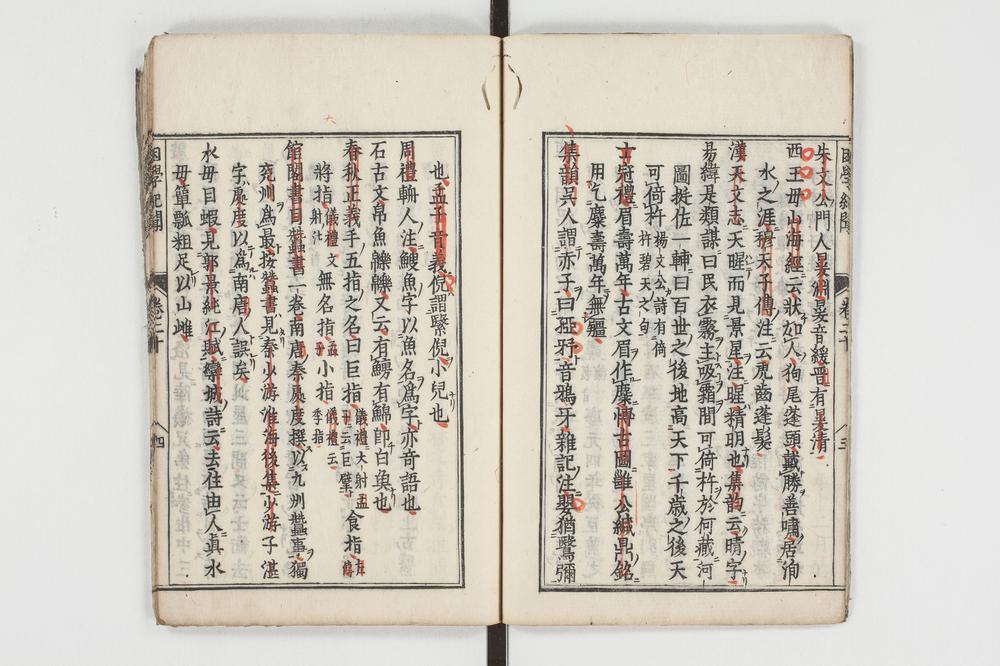 困學紀聞 卷二十 三
朱文公門人㬊淵㬊音緩晋有㬊清
西王毋山海經云狀如人狗尾蓬頭戴勝善嘯居洵
水之涯穆天子傳注云虎齒蓬髮
漢天文志天暒而見景星注暒精明也集韵云晴字
易緯是類謀曰民衣霧主吸霜間可倚杵於何藏河
圖挺佐輔曰百世之後地高天下千歳之後天
可倚杵楊文公詩有倚杵碧天之句
士冠禮眉壽萬年古文眉作麋博古圖雖公緘鼎銘
用乞麋壽萬年無疆
集韻呉人謂赤子曰音鴉牙雜記注嬰猶鷖彌
也孟子音義倪謂繄倪小兒也
周禮輈人注鰻魚字以魚名爲字亦奇語也
石古文帛魚鱳鱳又云有鰟有鯿即白魚也
春秋正義手五指之名曰巨指儀禮大射孟子云巨擘食指左傳
將指儀禮文射注無名指孟子小指儀禮云季指
館閣書目蠶書一卷南唐秦處度撰以九州蠶事獨
兖州爲最按蠶書見秦少游淮海後集少游子湛
字處度以爲南唐人誤矣
水毋目蝦見郭景純江賦欒城詩云去住由人眞水
毋簞瓢粗足以山雌
困學紀聞 卷二十 四